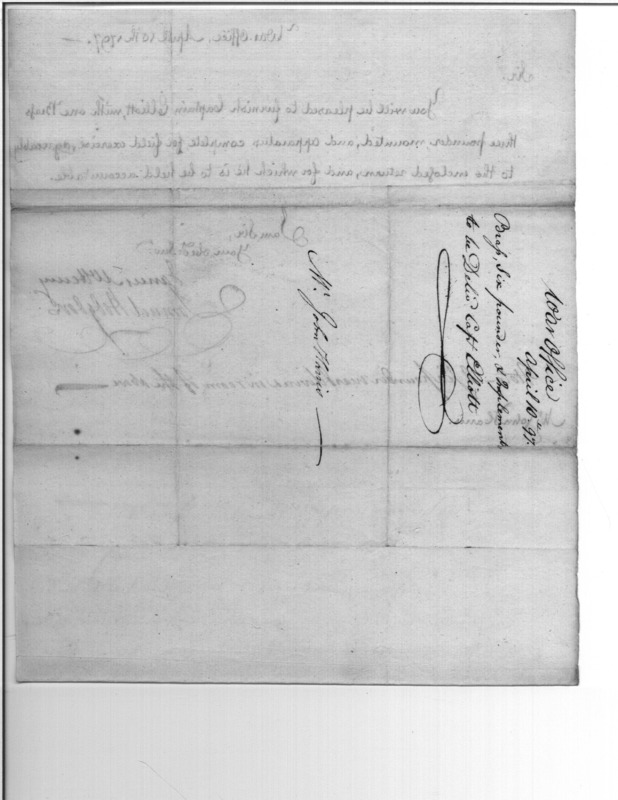 War Office
April 10th 97.
Brass, Six pounder, & Implements,
to be Deliv'd Capt Elliott
Mr John Harris
War Office, April 10th 1797.
Sir,
You will be pleased to furnish Captain Elliott, with one Brass
three pounder mounted, and apparatus complete for field exercise, agreeably
to the enclosed return, and for which he is to be held accountable.
I am Sir,
Your
James McHenry
Samuel Hodgdon
Mr John Harris